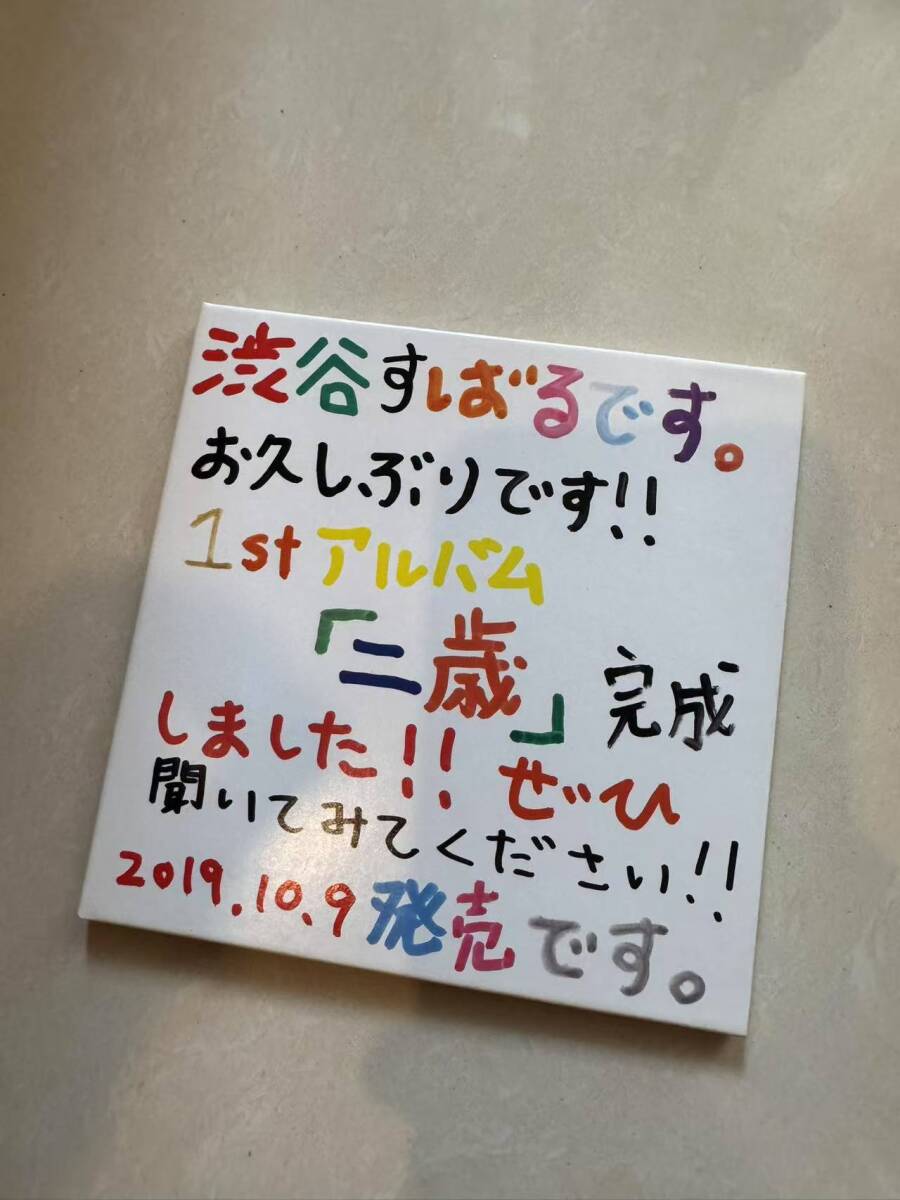 渋谷すばるです。
お久しぶりです!!
1stアルバム
「二歳」完成
しました!! ぜひ
聞いてみてください!!
2019.10.9発売です。